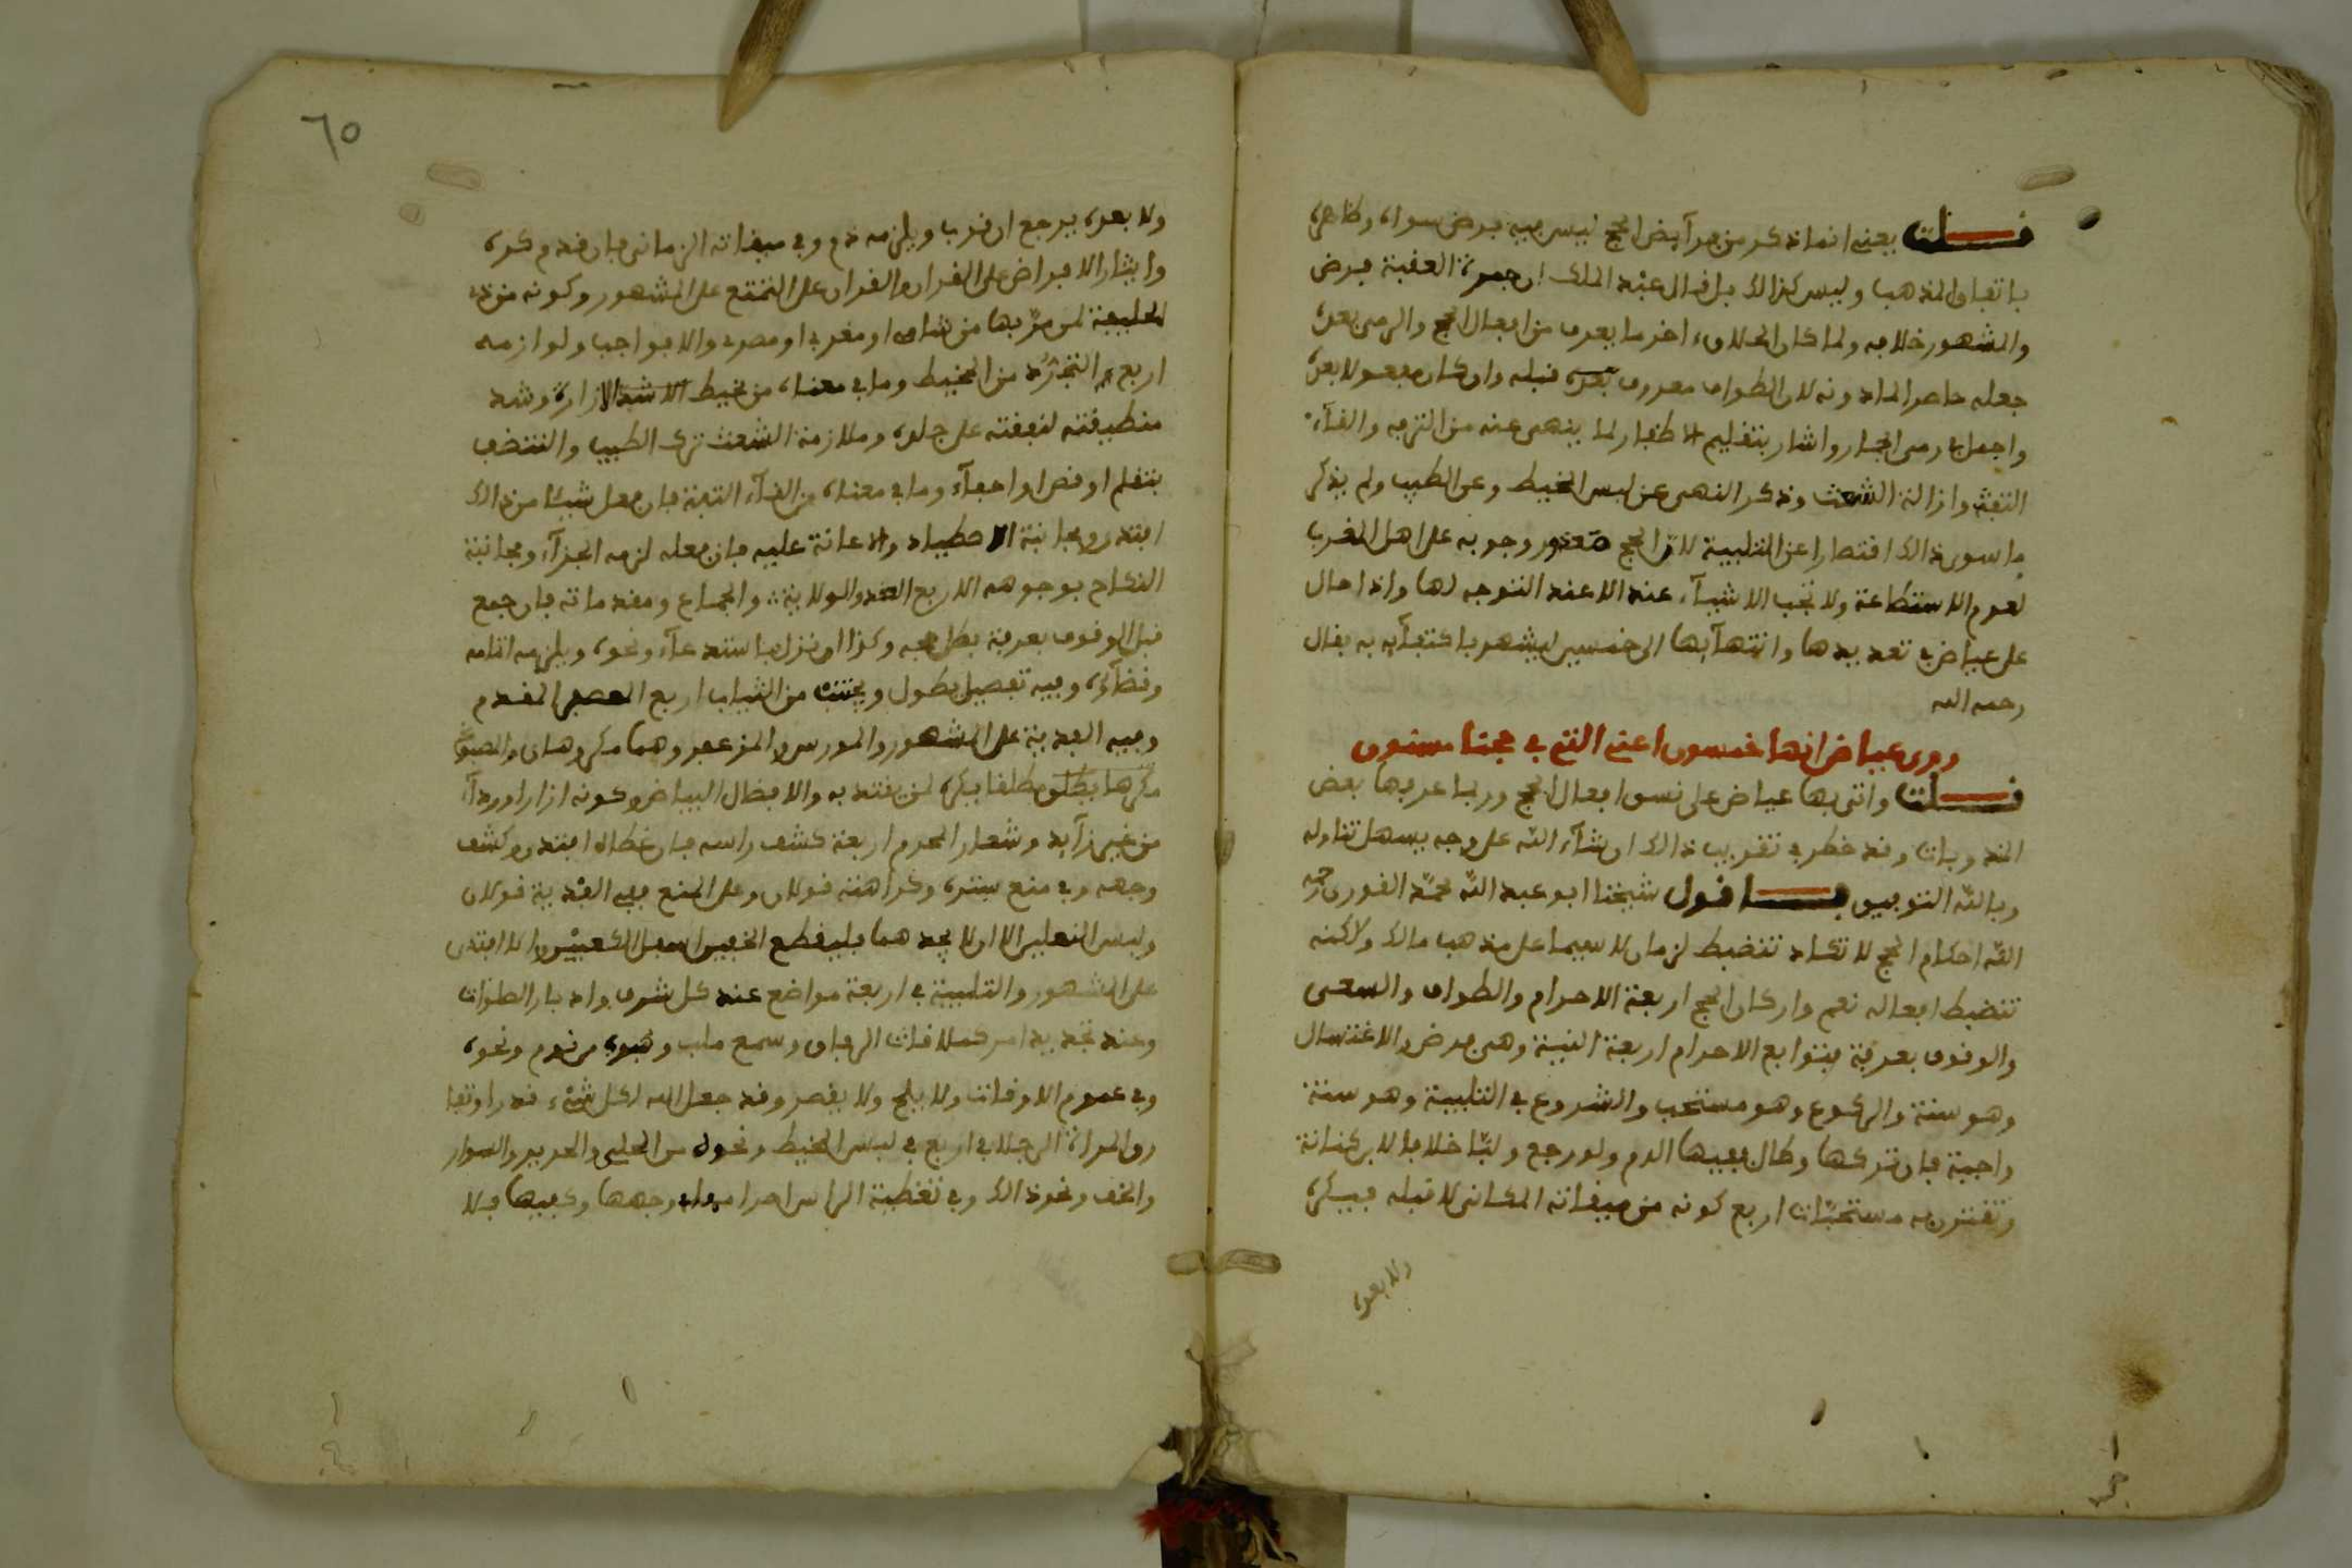 قلت يعني انما ذكر من فرآيض الحج ليس فيه فرض سواه وظاهره
باتفاق المذهب وليس كذالك بل قال عبد الملك ان جمرة العقبة فرض
والمشهور خلافه ولما كان الحلاق اخر ما يعرف من افعال الحج والرمي بعده
جعله حاصرا لما دونه لان الطواف معروف بعده قبله وان كان مفعولا بعده
واجعل رمي الجمار واشار بتقليم الاظفار لما ينهى عنه من الترفه والقآء
التفث وازالة الشعث وذكر النهي عن لبس المخيط وعن الطيب ولم يذكر
ما سوى ذالك اقتصارا عن التلبية لان الحج متعذر وجوبه على اهل المغرب
لعدم الاستطاعة ولا تجب الاشيآء عنده الا عند التوجه لها واذا حال
على عياض في تعديدها وانتهآيها الى خمسين ليشهر باكتفآيه به فقال
رحمه الله
روى عياض انها خمسون اعني التي في حجنا مسنون
قلت واتى بها عياض على نسق افعال الحج وربما عد فيها بعض
المندوبات وقد خطر في تقريب ذالك ان شآء الله على وجه يسهل تناوله
وبالله التوفيق فاقول شيخنا ابو عبد الله محمد القوري رحمه
الله احكام الحج لا تكاد تنضبط لزمان لا سيما على مذهب مالك ولاكنه
تنضبط افعاله نعم واركان الحج اربعة الاحرام والطواف والسعي
والوقوف بعرفة فتوابع الاحرام اربعة النية وهي فرض والاغتسال
وهو سنة والركوع وهو مستحب والشروع في التلبية وهو سنة
واجبة فان تركها وطال ففيها الدم ولو رجع ولبّا خلافا لابن كنانة
وتقترن به مستحبّات اربع كونه من ميقاته المكاني لا قبله فيكره
ولا بعده
٦٥
ولا بعده يرجع ان قرب ويلزمه دم وفي ميقاته الزماني فان قدم كره
وايثار الافراض على القران والقران على التمتع على المشهور وكونه من ذي
الحليفة لمن مرّ بها من شامي او مغربي او مصري والا فواجب ولوازمه
اربع التجرّد من المخيط وما في معناه من مخيط الا شد الازارة وشد
منطيقته لنفقته على جلده وملازمة الشعث ترك الطيب والتنضف
بتقلم او قص او احفآء وما في معناه من القآء التفث فان فعل شيئا من ذالك
افتدى ومجانبة الاصطياد والاعانة عليه فان فعله لزمه الجزآء ومجانبة
النكاح بوجوهه الاربع العقد والولاية والجماع ومقدماته فان جمع
قبل الوقوف بعرفة بطل حجه وكذا ان نزل باستدعآء ونحوه ويلزمه اتمامه
وقضآؤه وفيه تفصيل يطول ويجتنب من الثياب اربع المعصفر المفدم
وفيه الفدية على المشهور والمورس والمزعفر وهما مكروهان والمصبوغ
مطلقا فيكره لمن يقتدى به والافضل البياض وكونه ازارا ورداء
من غير زآيد وشعار المحرم اربعة كشف راسه فان غطاه افتدى وكشف
وجهه وفي منع ستره وكراهته قولان وعلى المنع ففي الفدية قولان
ولبس النعلين الا ان لا يجدهما فليقطع الخفين اسفل الكعبين والا افتدى
على المشهور والتلبية في اربعة مواضع عند كل شرف وادبار الصلوات
وعند تجديد امر كملاقات الرفاق وسمع ملب وهبوه من نوم ونحوه
وفي عموم الاوقات ولا يلح ولا يقصر وقد جعل الله لكل شيء قدرا وتفا
رق المراة الرجل في اربع في لبس المخيط ونحوه من الحلي والحرير والسوار
والخف ونحو ذالك وفي تغطية الراس احرام وجهها وكفيها فلا